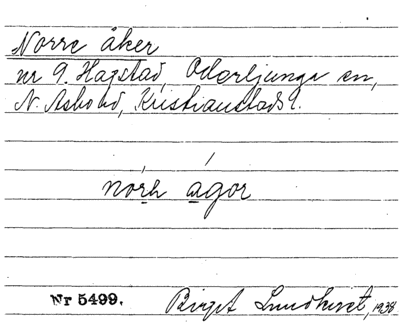 Norre åker
nr 9. Hagstad, Oderljunga sn,
N. Åsbo hd, Kristianstads l.
nórh ágor
Nr 5499. Birgit Lundkvist, 1938